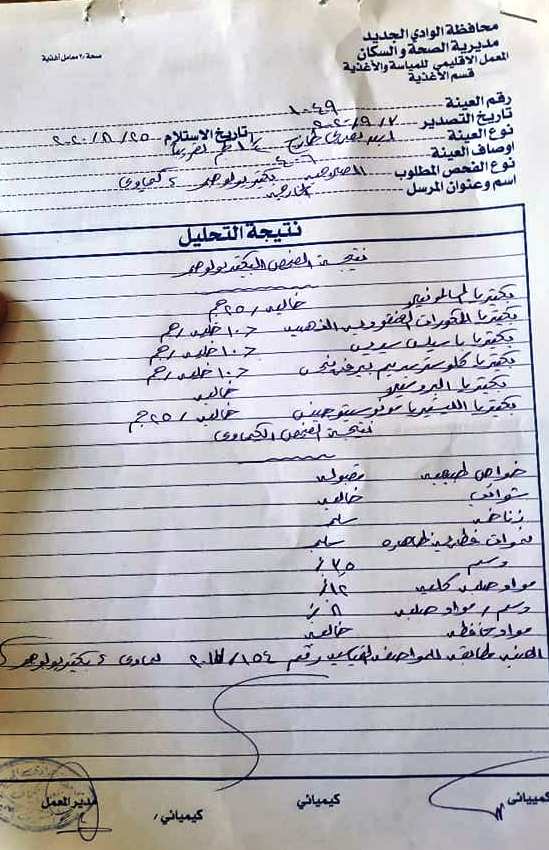 محافظة الوادي الجديد
مديرية الصحة والسكان
المعمل الاقليمي للمياسة والأغذية
قسم الأغذية
صحة/٢ معامل أغذية
رقم العينة ١٠٤٩
تاريخ التصدير ٢٠٢٠/٩/٧ تاريخ الاستلام ٢٠٢٠/٨/٢٥
نوع العينة
اوصاف العينة
نوع الفحص المطلوب بكتريولوجى ، كيماوى
اسم وعنوان المرسل الخارجة
نتيجة التحليل
نتيجة الفحص البكتريولوجى
بكتريا السالمونيلا خالية / ٢٥ جم
بكتريا المكورات العنقودية الذهبية < ١٠ خلية / جم
بكتريا باسيلس سيريس < ١٠ خلية / جم
بكتريا كلوستريديم بيرفرنجى < ١٠ خلية / جم
بكتريا البروسيلا خالية
بكتريا الليستريا مونوسيتوجينى خالية / ٢٥ جم
نتيجة الفحص الكيماوى
خواص طبيعية مقبولة
شوائب خالية
زناخه سليم
نموات فطرية ظاهره سليم
دسم
مواد صلبه كليه ٪١٢
دسم / مواد صلبه
مواد حافظه خاليه
العينه مطابقه للمواصفه القياسيه رقم ١٥٤ / كيماوى ، بكتريولوجى
كيميائى كيميائي كيميائي مدير المعمل